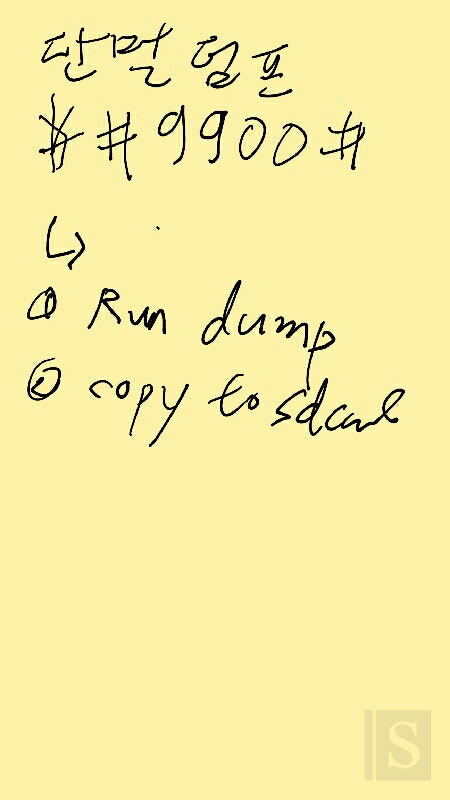 단멀 덤프
*#9900#
↳
① Run dump
② copy to sdcard
S